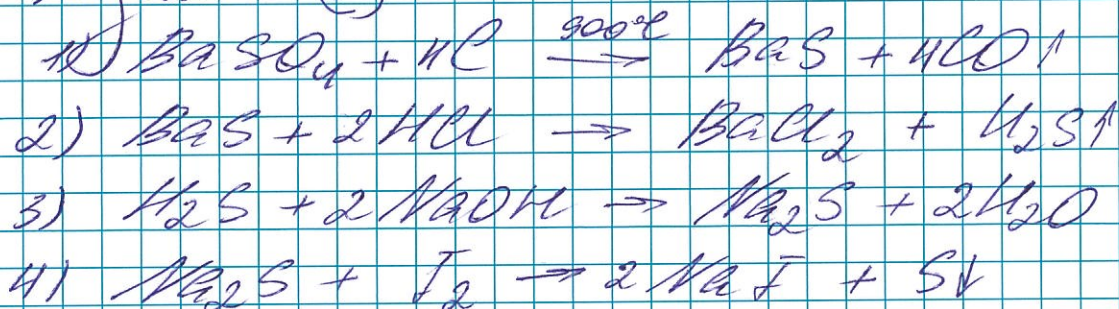 1) BaSO₄ + 4C 900°C → BaS + 4CO↑
2) BaS + 2HCl → BaCl₂ + H₂S↑
3) H₂S + 2NaOH → Na₂S + 2H₂O
4) Na₂S + I₂ → 2NaI + S↓